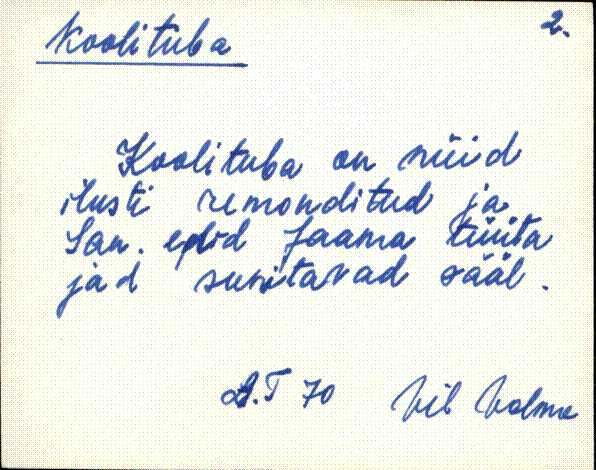 Koolituba 2.
Koolituba on nüüd
ilusti remonditud ja
San. epid Jaama tüüta
jad suvitavad sääl.
A.T 70 Vil Volme